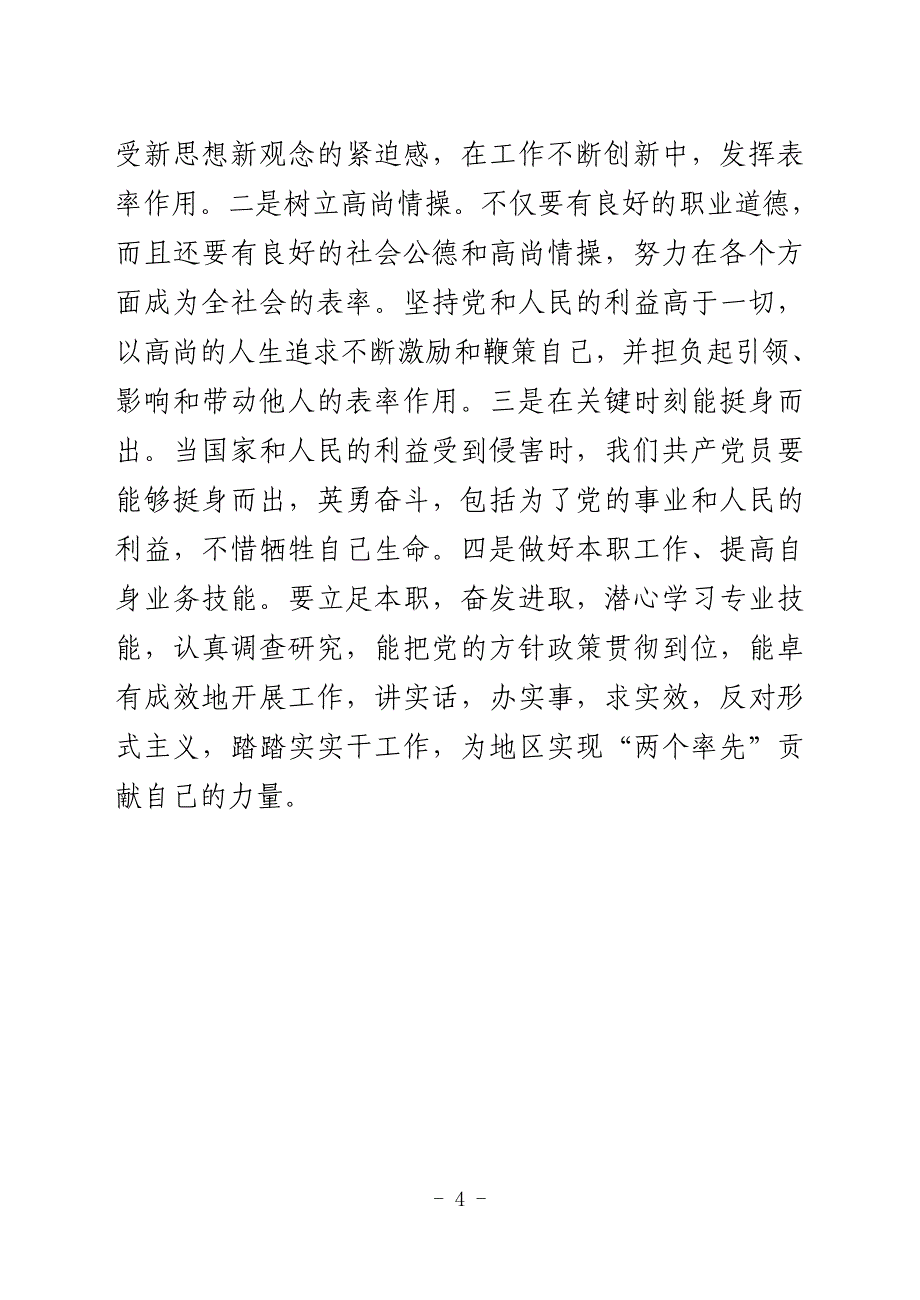 受新思想新观念的紧迫感，在工作不断创新中，发挥表
率作用。二是树立高尚情操。不仅要有良好的职业道德，
而且还要有良好的社会公德和高尚情操，努力在各个方
面成为全社会的表率。坚持党和人民的利益高于一切，
以高尚的人生追求不断激励和鞭策自己，并担负起引领、
影响和带动他人的表率作用。三是在关键时刻能挺身而
出。当国家和人民的利益受到侵害时，我们共产党员要
能够挺身而出，英勇奋斗，包括为了党的事业和人民的
利益，不惜牺牲自己生命。四是做好本职工作、提高自
身业务技能。要立足本职，奋发进取，潜心学习专业技
能，认真调查研究，能把党的方针政策贯彻到位，能卓
有成效地开展工作，讲实话，办实事，求实效，反对形
式主义，踏踏实实干工作，为地区实现“两个率先”贡
献自己的力量。
- 4 -